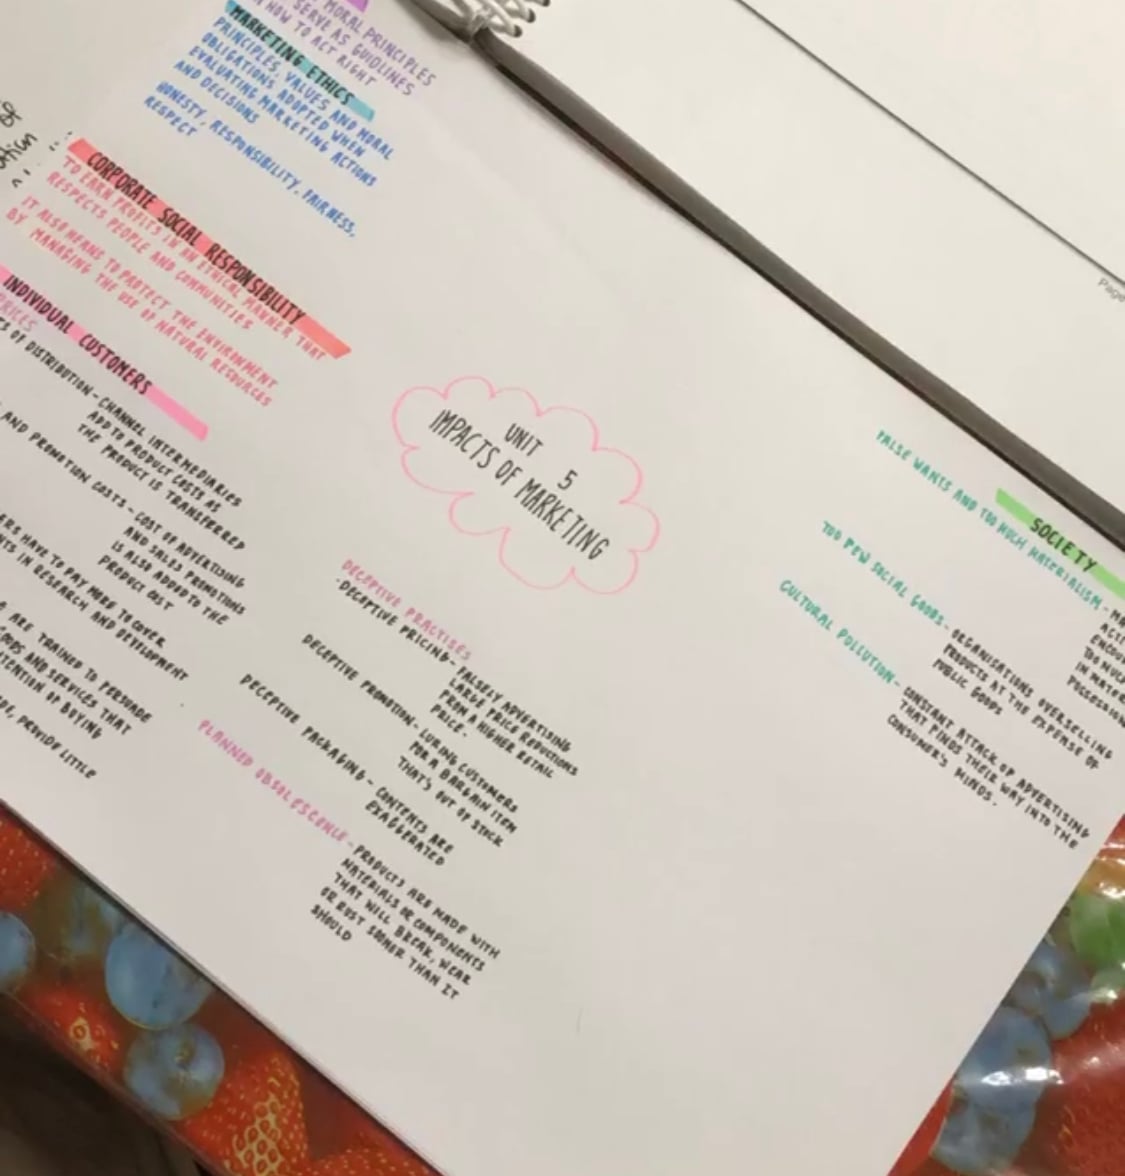 MORAL PRINCIPLES
SERVE AS GUIDLINES
HOW TO ACT RIGHT
MARKETING ETHICS
PRINCIPLES, VALUES AND MORAL
OBLIGATIONS, ADOPTED WHEN
EVALUATING MARKETING ACTIONS
AND DECISIONS
HONESTY, RESPONSIBILITY, FAIRNESS,
RESPECT
OF
CORPORATE SOCIAL RESPONSIBILITY
TO EARN PROFITS IN AN ETHICAL MANNER THAT
RESPECTS PEOPLE AND COMMUNITIES
IT ALSO MEANS TO PROTECT THE ENVIRONMENT
BY MANAGING THE USE OF NATURAL RESOURCES
INDIVIDUAL CUSTOMERS
PRICES
OF DISTRIBUTION - CHANNEL INTERMEDIARIES
ADD TO PRODUCT COSTS AS
THE PRODUCT IS TRANSFERRED
AND PROMOTION COSTS - COST OF ADVERTISING
AND SALES PROMOTIONS
IS ALSO ADDED TO THE
PRODUCT COST
HAVE TO PAY MORE TO COVER
IN RESEARCH AND DEVELOPMENT
ARE TRAINED TO PERSUADE
GOODS AND SERVICES THAT
OF BUYING
PROVIDE LITTLE
UNIT 5
IMPACTS OF MARKETING
DECEPTIVE PRACTISES
- DECEPTIVE PRICING - FALSELY ADVERTISING
LARGE PRICE REDUCTIONS
FROM A HIGHER RETAIL
PRICE.
DECEPTIVE PROMOTION - LURING CUSTOMERS
FOR A BARGAIN ITEM
THAT'S OUT OF STOCK
DECEPTIVE PACKAGING - CONTENTS ARE
EXAGGERATED
PLANNED OBSOLESCENCE - PRODUCTS ARE MADE WITH
MATERIALS OR COMPONENTS
THAT WILL BREAK, WEAR
OR RUST SOONER THAN IT
SHOULD
Page
SOCIETY
FALSE WANTS AND TOO MUCH MATERIALISM -
TOO MUCH
TOO FEW SOCIAL GOODS - ORGANISATIONS OVERSELLING
PRODUCTS AT THE EXPENSE OF
PUBLIC GOODS
CULTURAL POLLUTION - CONSTANT ATTACK OF ADVERTISING
THAT FINDS THEIR WAY INTO THE
CONSUMER'S MINDS.